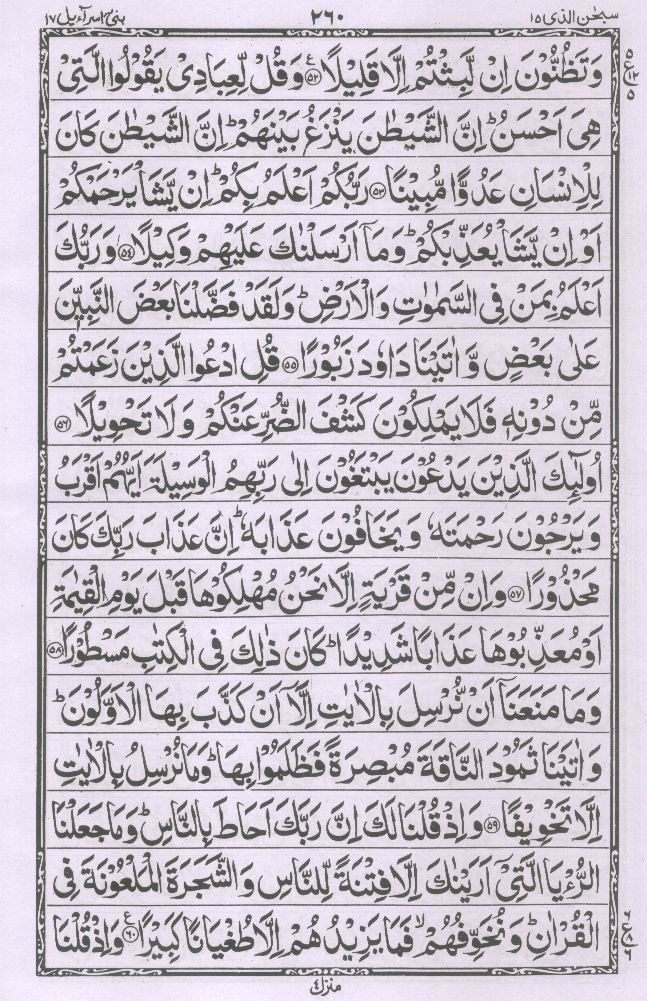 سبحٰن الذی ۱۵
۲۶۰
بنیٓ اسرآءیل ۱۷
وَتَظُنُّوْنَ اِنْ لَّبِثْتُمْ اِلَّا قَلِيْلًا ﴿۵۲﴾ وَقُلْ لِّعِبَادِىْ يَقُوْلُوا الَّتِىْ
هِىَ اَحْسَنُ ؕ اِنَّ الشَّيْطٰنَ يَنْزَغُ بَيْنَهُمْ ؕ اِنَّ الشَّيْطٰنَ كَانَ
لِلْاِنْسَانِ عَدُوًّا مُّبِيْنًا ﴿۵۳﴾ رَبُّكُمْ اَعْلَمُ بِكُمْ ؕ اِنْ يَّشَاْ يَرْحَمْكُمْ
اَوْ اِنْ يَّشَاْ يُعَذِّبْكُمْ ؕ وَمَاۤ اَرْسَلْنٰكَ عَلَيْهِمْ وَكِيْلًا ﴿۵۴﴾ وَرَبُّكَ
اَعْلَمُ بِمَنْ فِى السَّمٰوٰتِ وَالْاَرْضِ ؕ وَلَقَدْ فَضَّلْنَا بَعْضَ النَّبِيّٖنَ
عَلٰى بَعْضٍ وَّاٰتَيْنَا دَاوٗدَ زَبُوْرًا ﴿۵۵﴾ قُلِ ادْعُوا الَّذِيْنَ زَعَمْتُمْ
مِّنْ دُوْنِهٖ فَلَا يَمْلِكُوْنَ كَشْفَ الضُّرِّ عَنْكُمْ وَلَا تَحْوِيْلًا ﴿۵۶﴾
اُولٰٓئِكَ الَّذِيْنَ يَدْعُوْنَ يَبْتَغُوْنَ اِلٰى رَبِّهِمُ الْوَسِيْلَةَ اَيُّهُمْ اَقْرَبُ
وَيَرْجُوْنَ رَحْمَتَهٗ وَيَخَافُوْنَ عَذَابَهٗ ؕ اِنَّ عَذَابَ رَبِّكَ كَانَ
مَحْذُوْرًا ﴿۵۷﴾ وَاِنْ مِّنْ قَرْيَةٍ اِلَّا نَحْنُ مُهْلِكُوْهَا قَبْلَ يَوْمِ الْقِيٰمَةِ
اَوْ مُعَذِّبُوْهَا عَذَابًا شَدِيْدًا ؕ كَانَ ذٰلِكَ فِى الْكِتٰبِ مَسْطُوْرًا ﴿۵۸﴾
وَمَا مَنَعَنَاۤ اَنْ نُّرْسِلَ بِالْاٰيٰتِ اِلَّاۤ اَنْ كَذَّبَ بِهَا الْاَوَّلُوْنَ ؕ
وَاٰتَيْنَا ثَمُوْدَ النَّاقَةَ مُبْصِرَةً فَظَلَمُوْا بِهَا ؕ وَمَا نُرْسِلُ بِالْاٰيٰتِ
اِلَّا تَخْوِيْفًا ﴿۵۹﴾ وَاِذْ قُلْنَا لَكَ اِنَّ رَبَّكَ اَحَاطَ بِالنَّاسِ ؕ وَمَا جَعَلْنَا
الرُّءْيَا الَّتِىْۤ اَرَيْنٰكَ اِلَّا فِتْنَةً لِّلنَّاسِ وَالشَّجَرَةَ الْمَلْعُوْنَةَ فِى
الْقُرْاٰنِ ؕ وَنُخَوِّفُهُمْ ۙ فَمَا يَزِيْدُهُمْ اِلَّا طُغْيَانًا كَبِيْرًا ﴿۶۰﴾ وَاِذْ قُلْنَا
منزل ۴